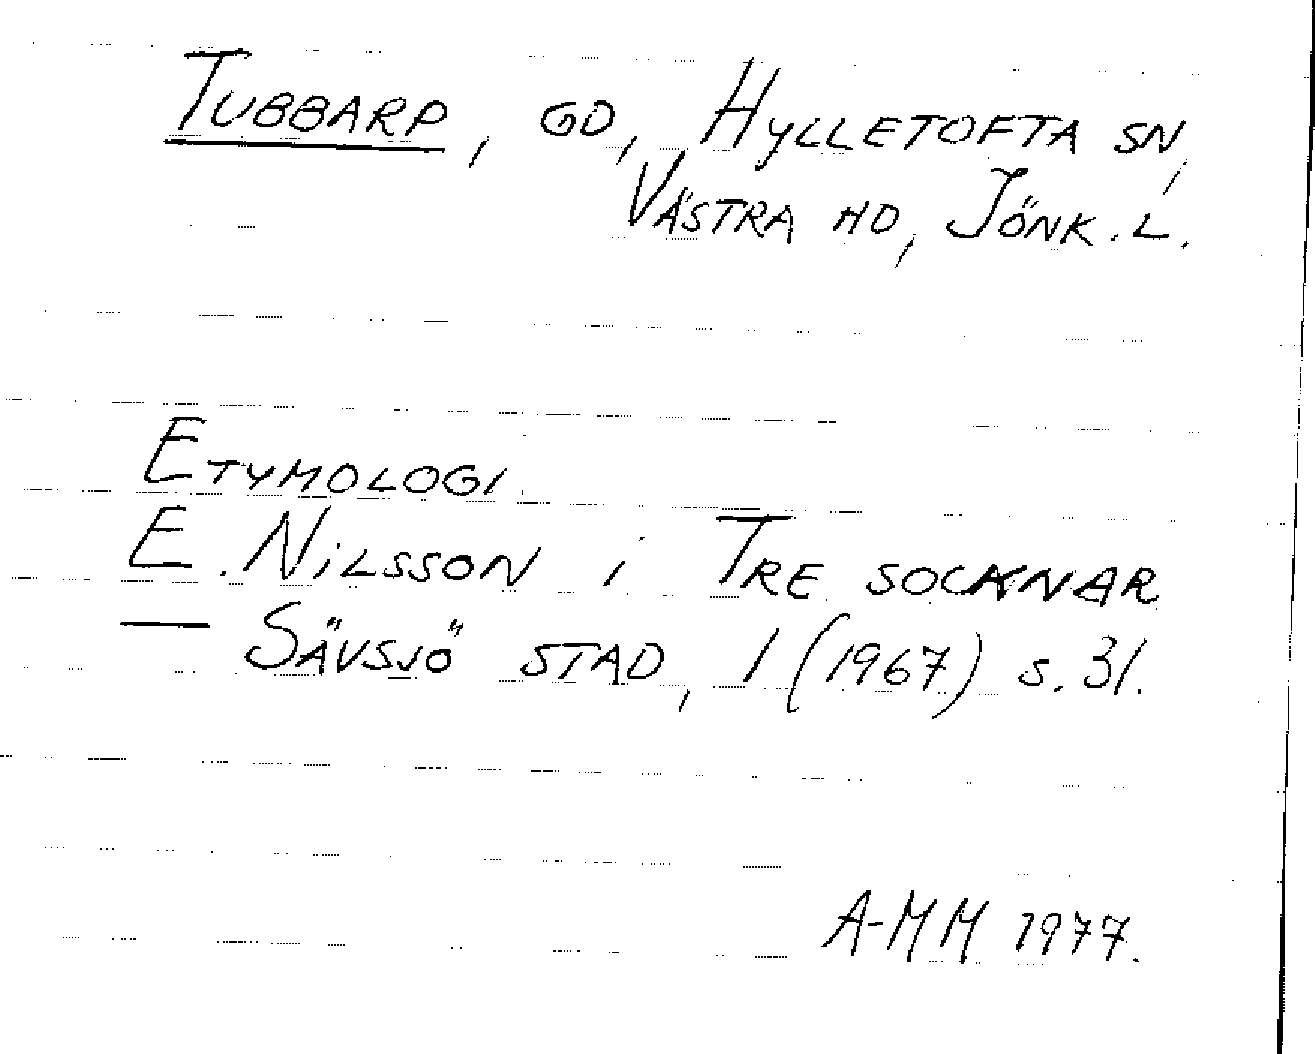 Tubbarp, gd, Hylletofta sn,
Västra hd, Jönk. l.
Etymologi
E. Nilsson i Tre socknar
— Sävsjö stad, 1 (1967) s. 31.
A-MM 1977.